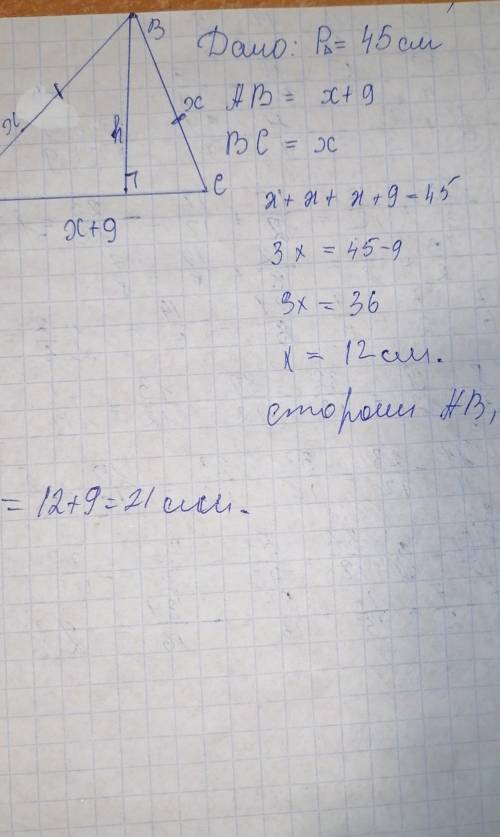 Дано: P∆ = 45 см
AB = x+9
BC = x
x + x + x + 9 = 45
3x = 45-9
3x = 36
x = 12 см.
сторони AB,
B
x
x
h
C
x+9
= 12+9=21 см.